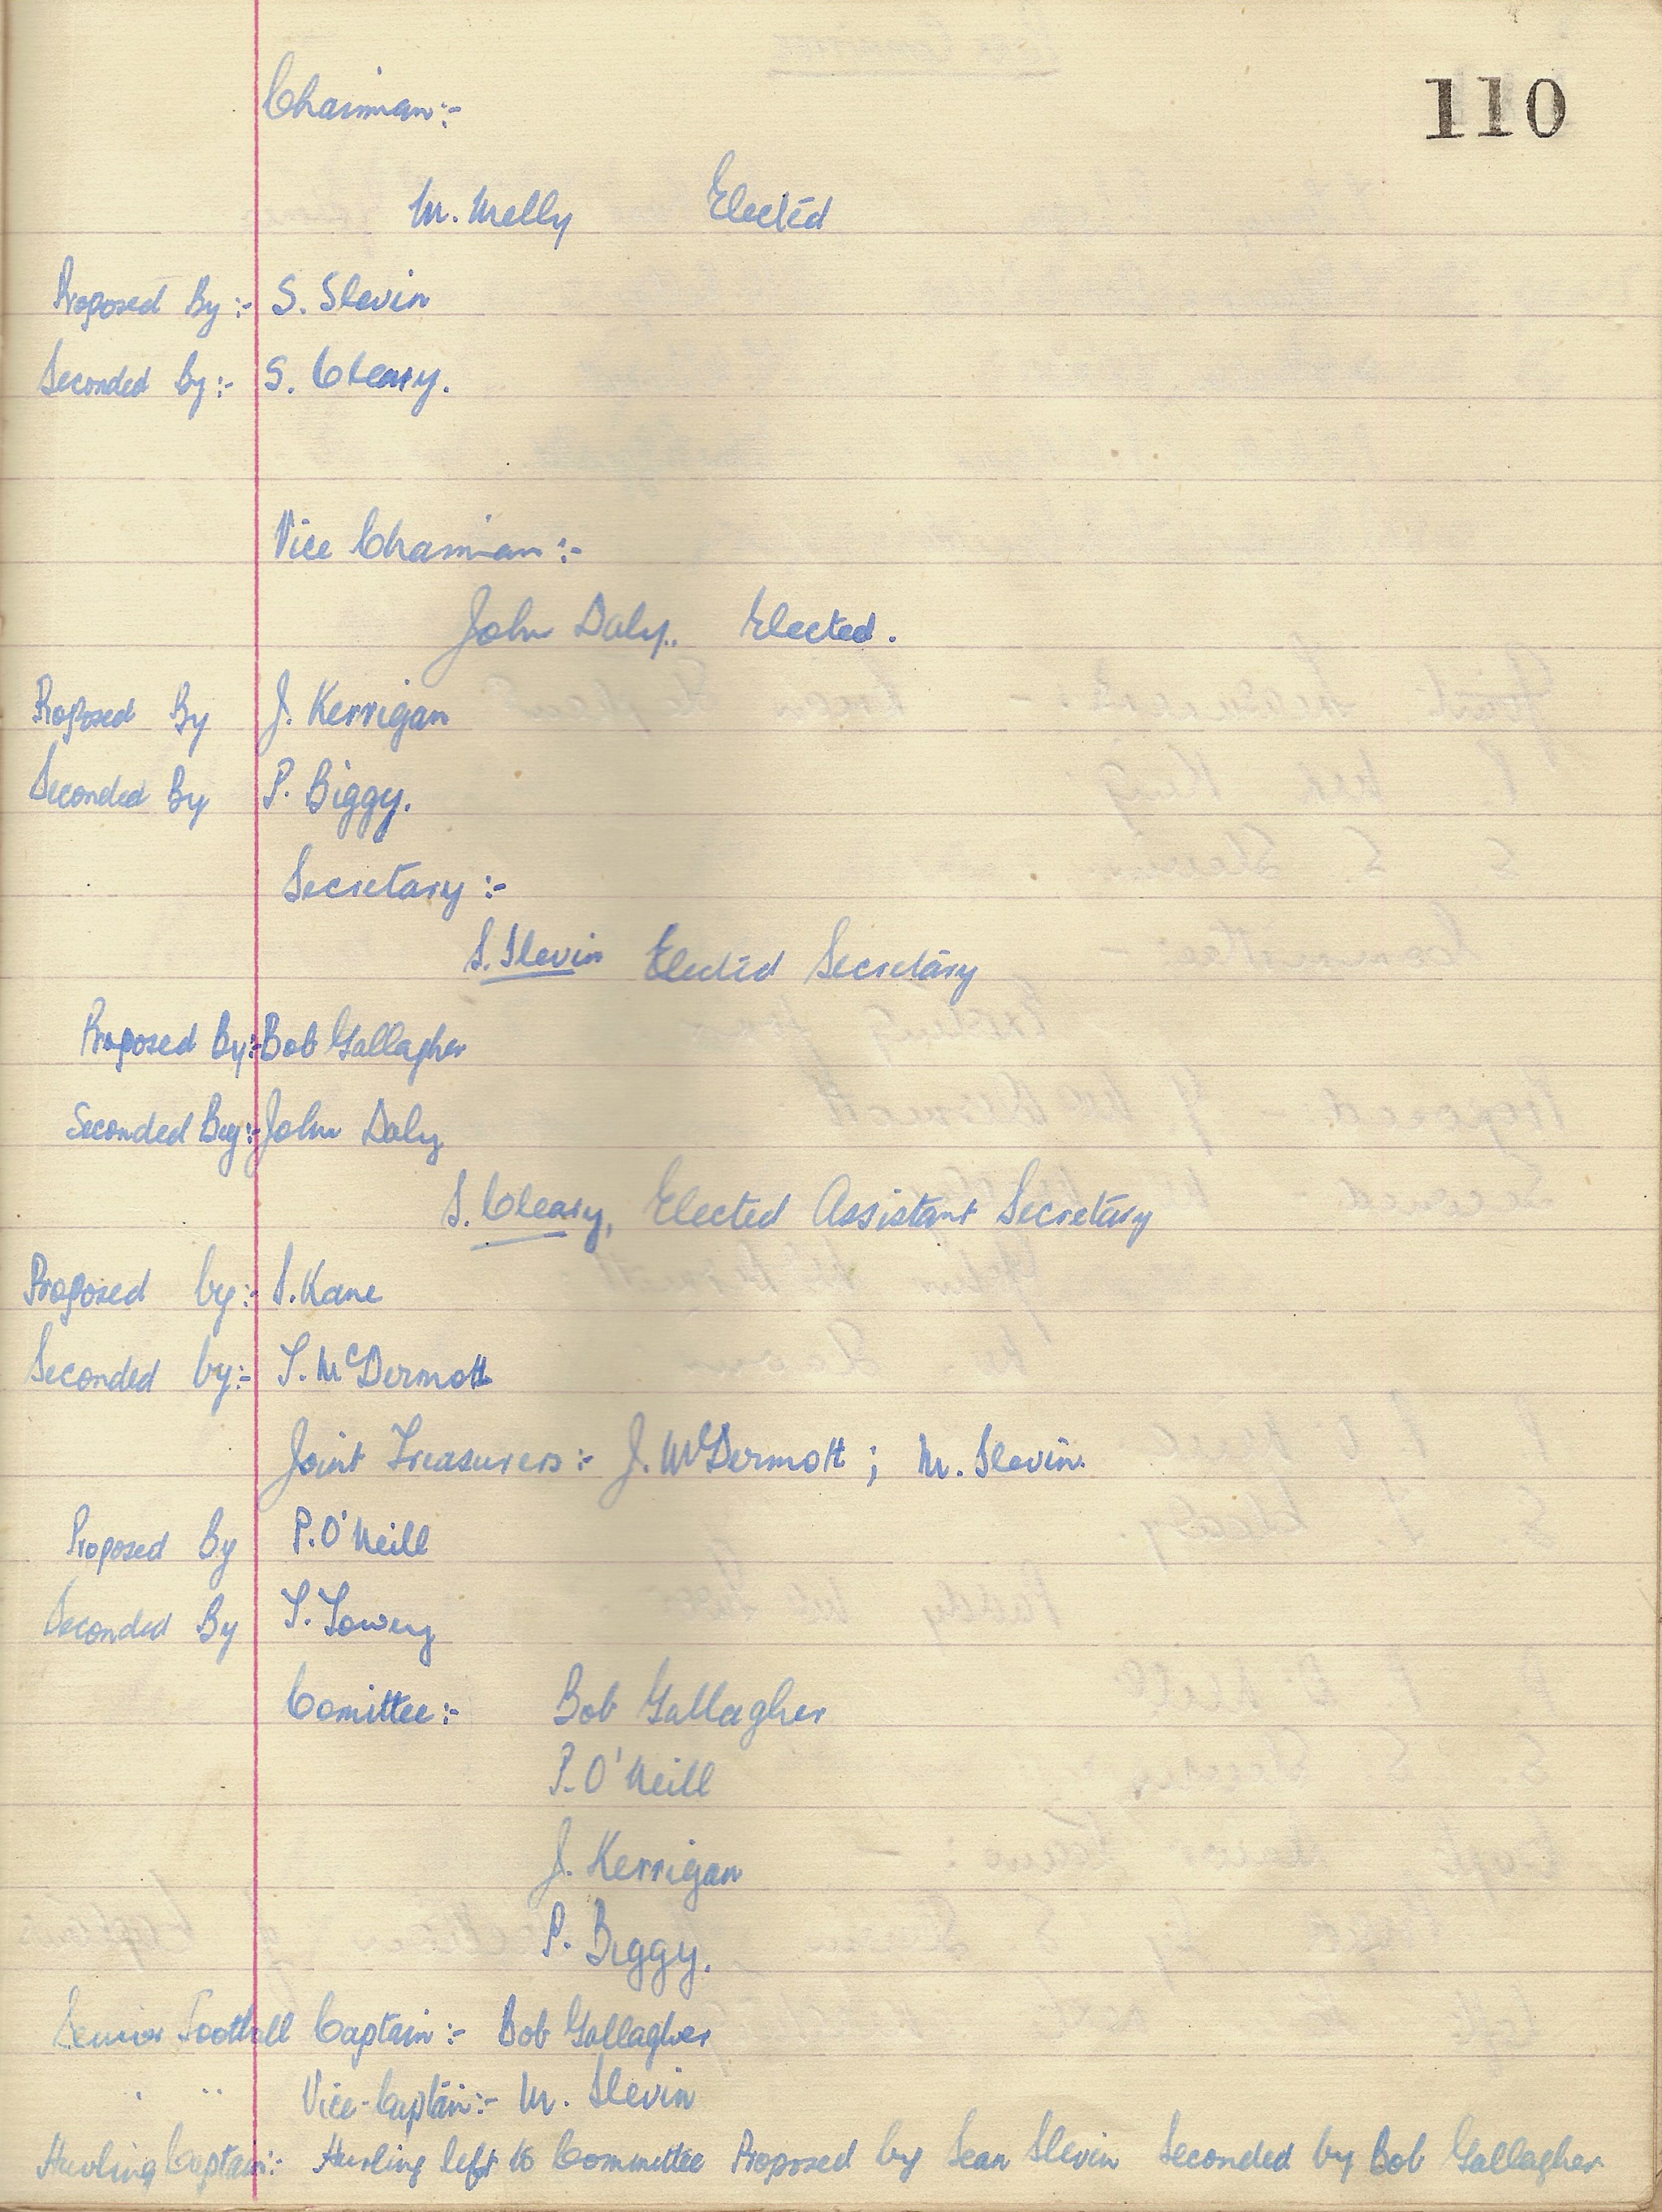 110
Chairman:-
M. Melly Elected
Proposed By:- S. Slevin
Seconded by:- S. Cleary.
Vice Chairman:-
John Daly. Elected.
Proposed By J. Kerrigan
Seconded By P. Biggy.
Secretary:-
S. Slevin Elected Secretary
Proposed By:- Bob Gallagher
Seconded By:- John Daly
S. Cleary, Elected Assistant Secretary
Proposed by:- S. Kane
Seconded by:- T. McDermott
Joint Treasurers:- J. McDermott; M. Slevin.
Proposed By P. O'Neill
Seconded By T. Lowery
Comittee:- Bob Gallagher
P. O'Neill
J. Kerrigan
P. Biggy.
Senior Football Captain:- Bob Gallagher
" " Vice-Captain:- M. Slevin
Hurling Captain:- Hurling left to Committee Proposed by Sean Slevin Seconded by Bob Gallagher